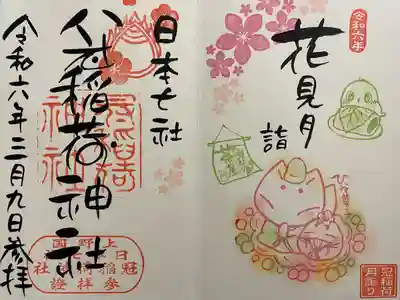 令和六年
花見月
詣
冠稲荷
月詣り
日本七社
冠稲荷神社
令和六年三月九日参拝
上野国
日本七社
冠稲荷神社
参拝證